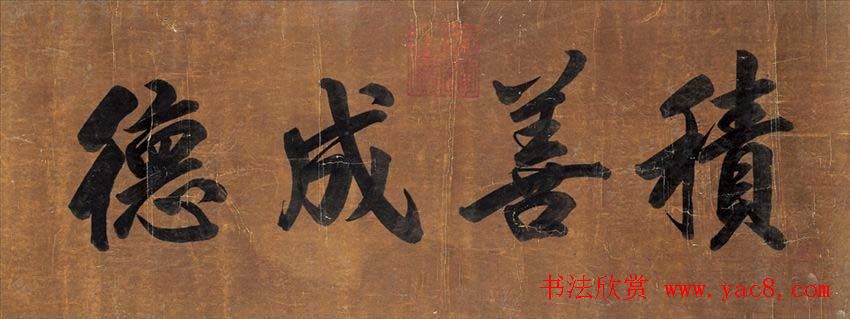 積善成德
书法欣赏 www.yac8.com